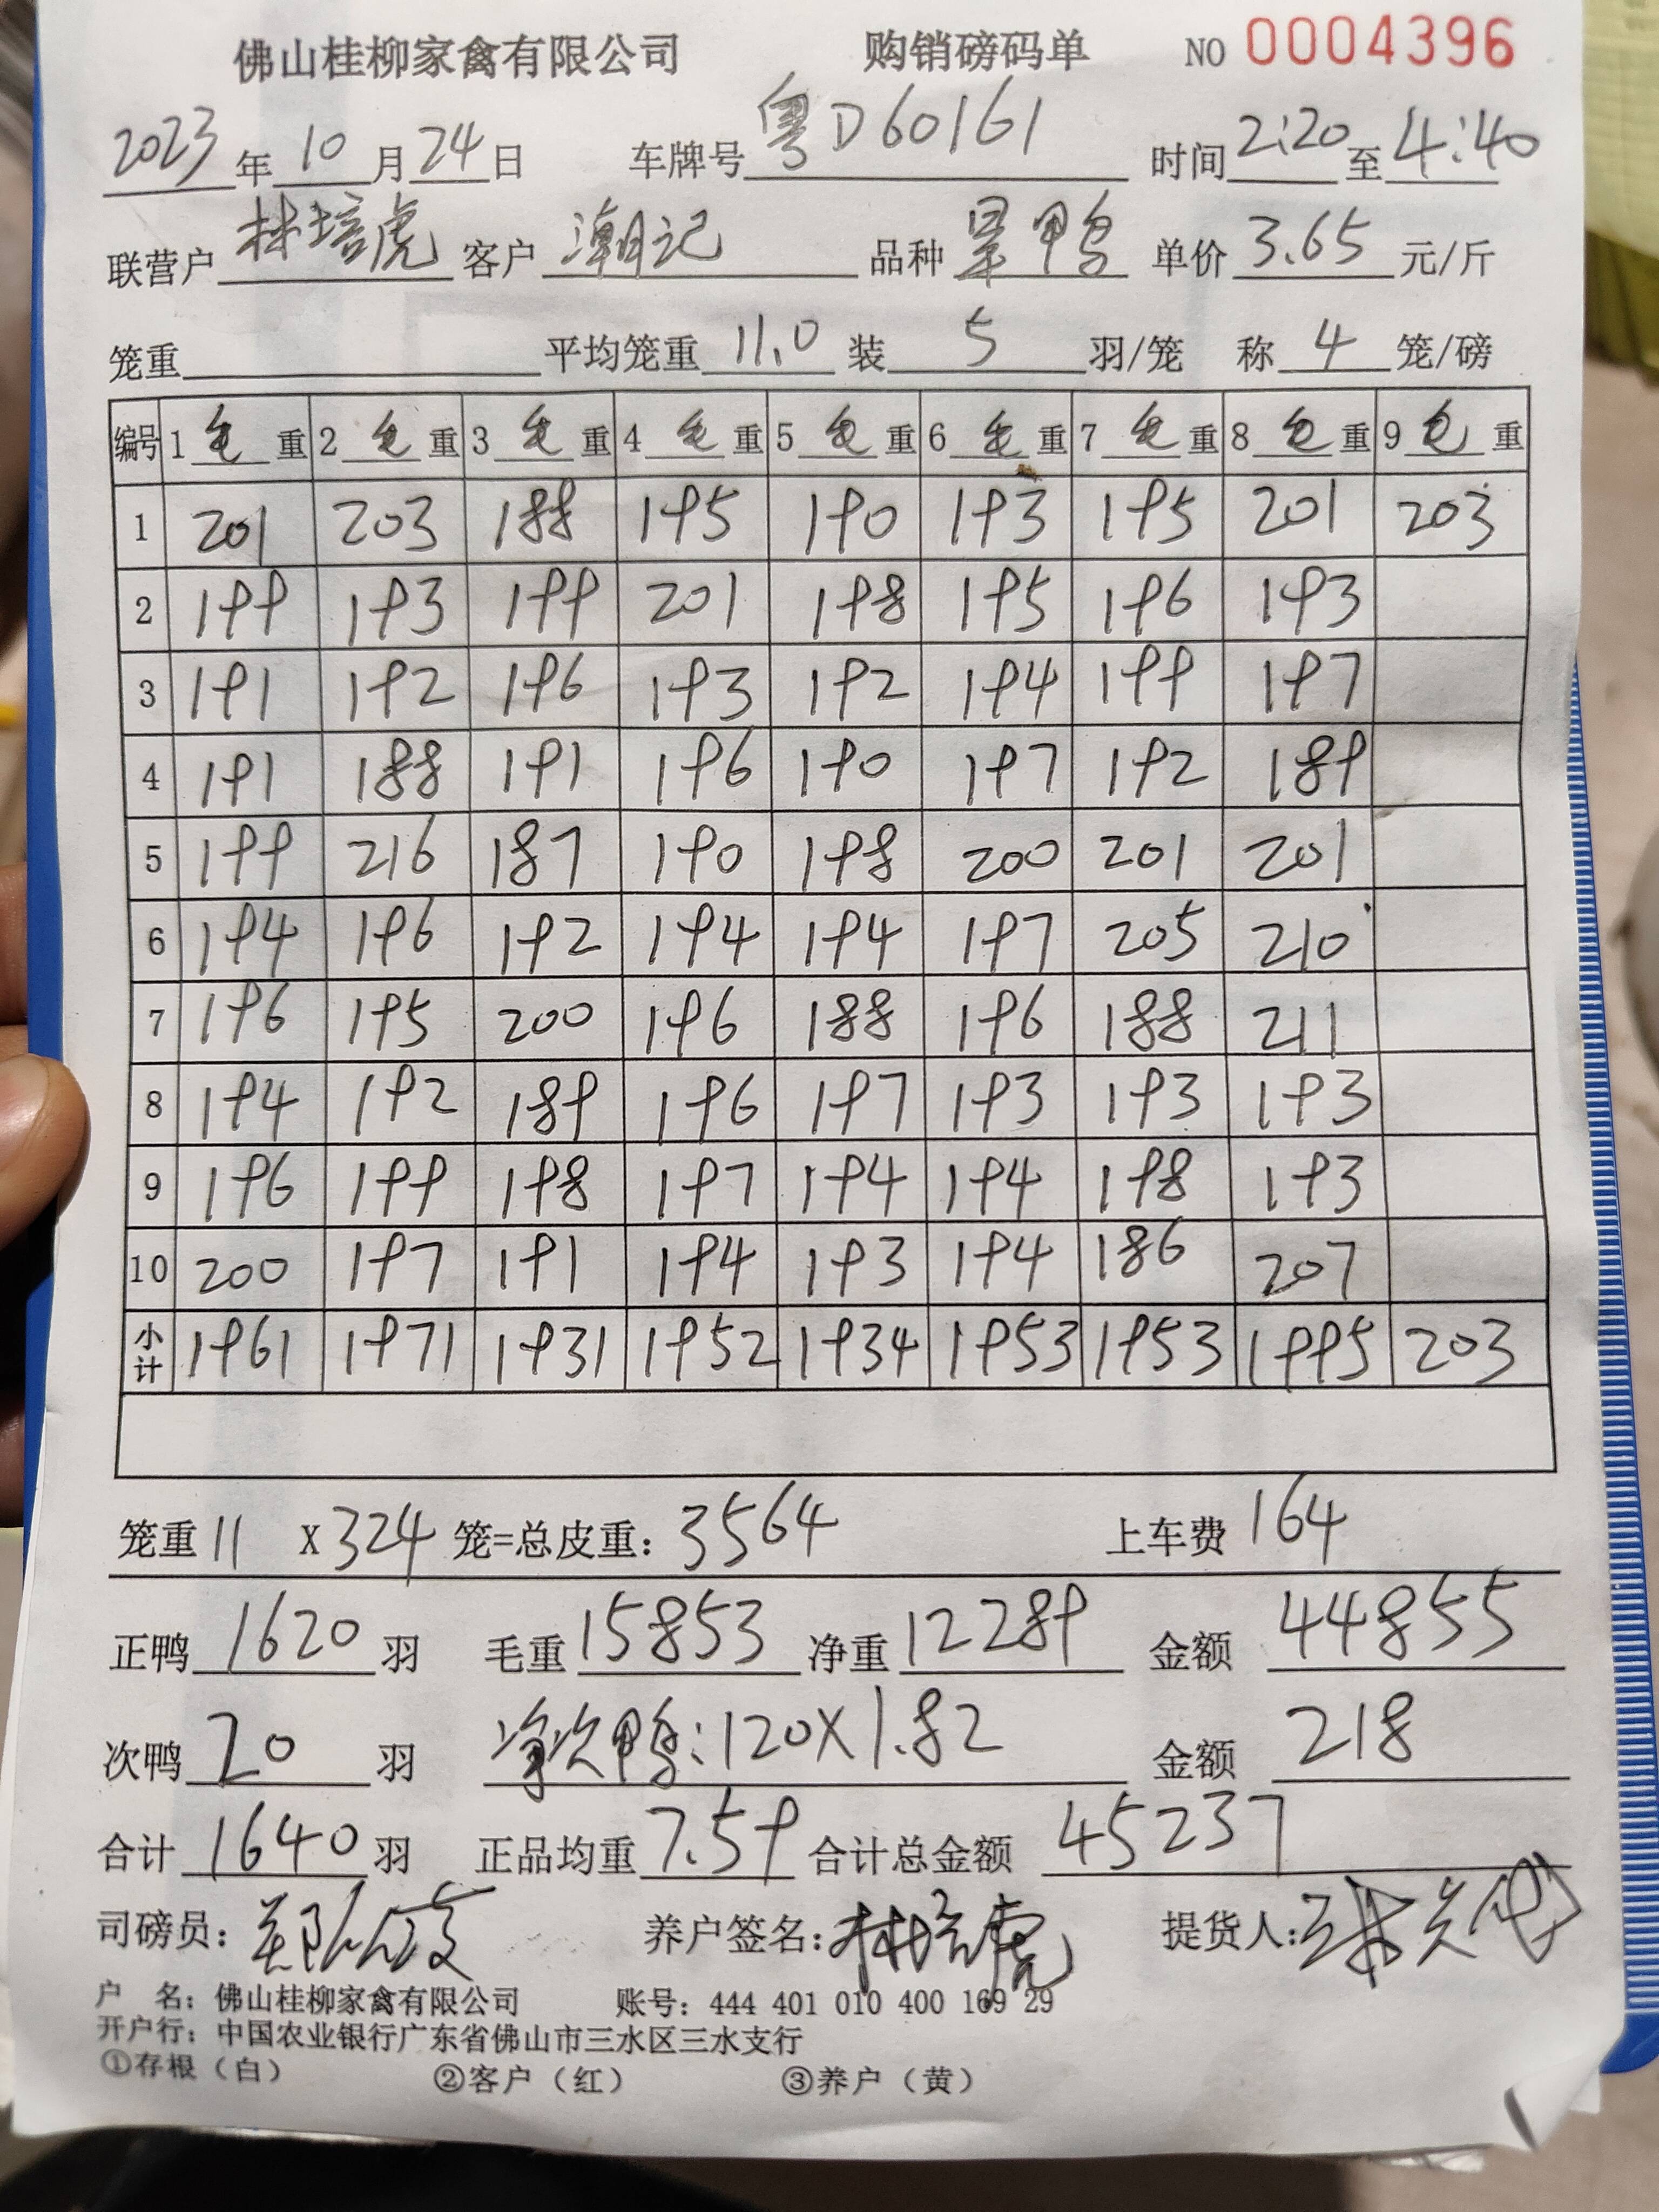 佛山桂柳家禽有限公司 购销磅码单 NO 0004396
2023年10月24日 车牌号 粤D60161 时间 2:20 至 4:40
联营户 林培虎 客户 潮记 品种 鸭 单价 3.65 元/斤
笼重 平均笼重 11.0 装 5 羽/笼 称 4 笼/磅
编号 1 毛 重 2 毛 重 3 毛 重 4 毛 重 5 毛 重 6 毛 重 7 毛 重 8 毛 重 9 毛 重
1 201 203 188 195 190 193 195 201 203
2 199 193 199 201 198 195 196 193
3 191 192 196 193 192 194 199 197
4 191 188 191 196 190 197 192 189
5 199 216 187 190 198 200 201 201
6 194 196 192 194 194 197 205 210
7 196 195 200 196 188 196 188 211
8 194 192 189 196 197 193 193 193
9 196 199 198 197 194 194 198 193
10 200 197 191 194 193 194 186 207
小计 1961 1971 1931 1952 1934 1953 1953 1995 203
笼重 11 X 324 笼=总皮重: 3564 上车费 164
正鸭 1620 羽 毛重 15853 净重 12289 金额 44855
次鸭 20 羽 净次鸭:120X1.82 金额 218
合计 1640 羽 正品均重 7.59 合计总金额 45237
司磅员: 养户签名: 林培虎 提货人:
户 名: 佛山桂柳家禽有限公司 账号: 444 401 010 400 169 29
开户行: 中国农业银行广东省佛山市三水区三水支行
①存根（白） ②客户（红） ③养户（黄）